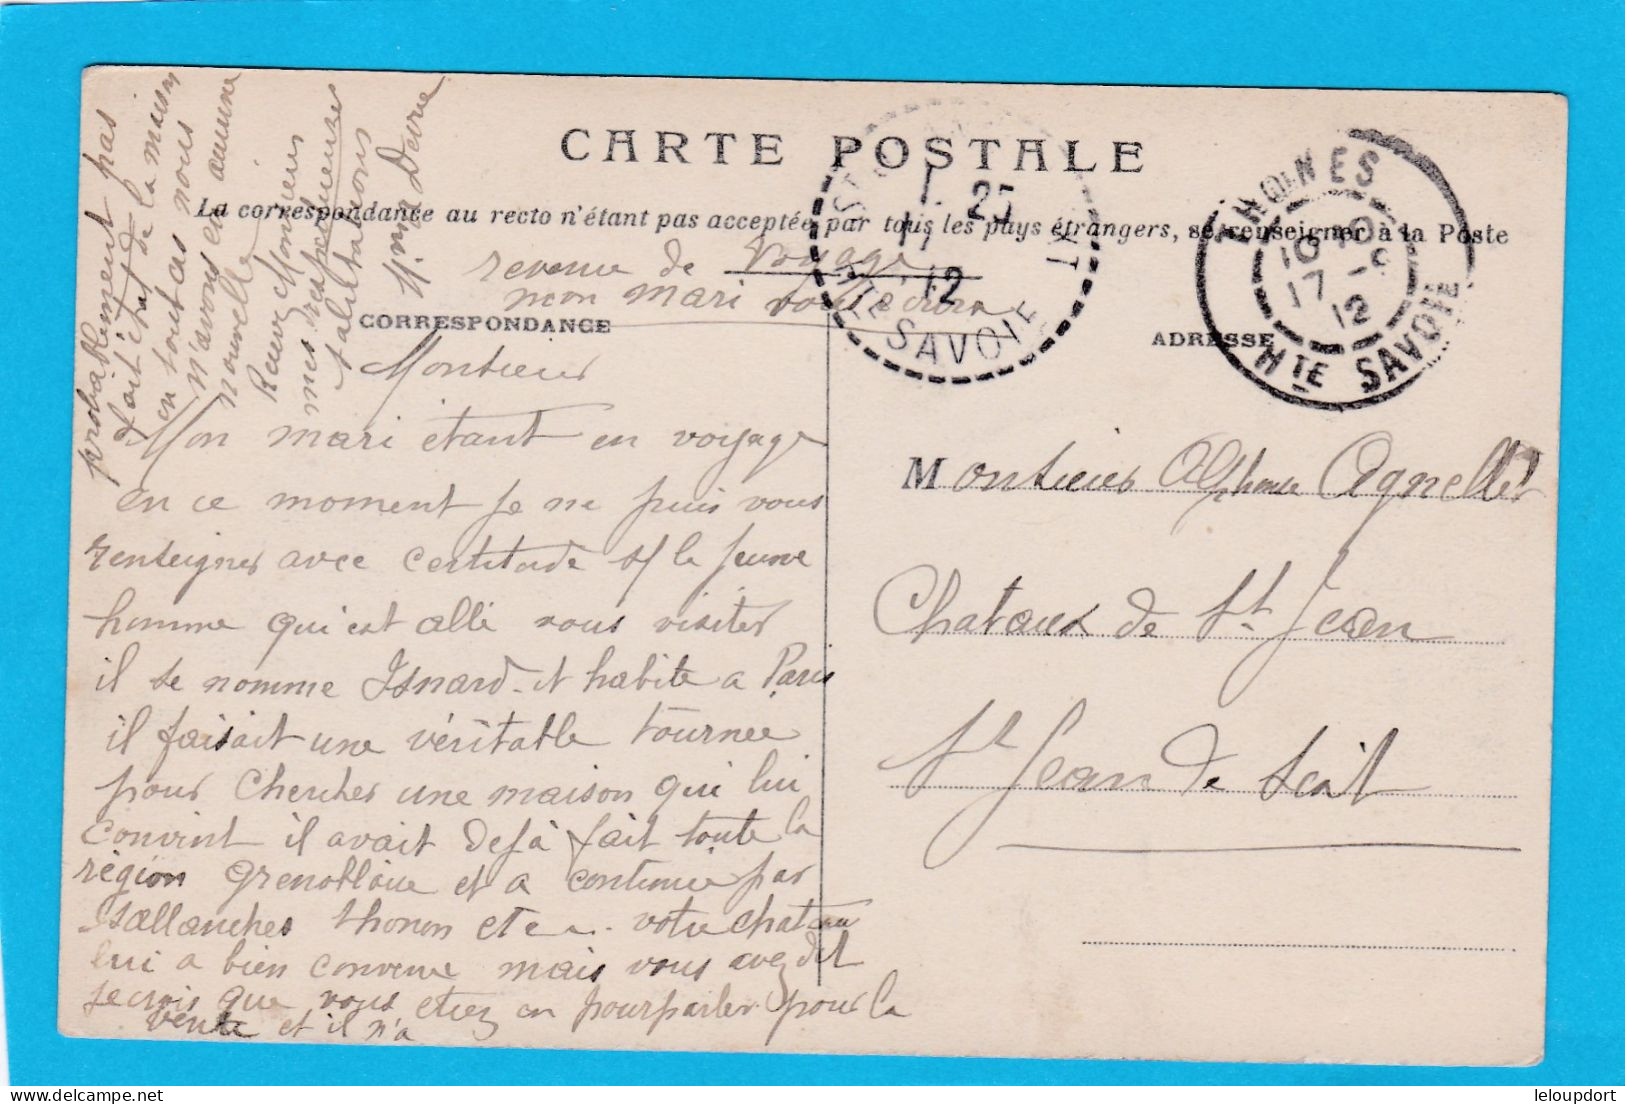 CARTE POSTALE
La correspondance au recto n'étant pas acceptée par tous les pays étrangers, se renseigner à la Poste
CORRESPONDANCE
ADRESSE
Monsieur
Mon mari étant en voyage
en ce moment je ne puis vous
renseigner avec certitude si le jeune
homme qui est allé vous visiter
il se nomme Isnard et habite a Paris
il faisait une véritable tournée
pour chercher une maison qui lui
convint il avait déjà fait toute la
région Grenobloise et a continué par
Sallanches Thonon etc... votre chateau
lui a bien convenu mais vous avez dit
je crois que vous etiez en pourparler pour la
vente et il n'a
probablement pas
fait état de la maison
en tout cas nous
n'avons eu aucune
nouvelle
Recevez Monsieur
mes respectueuses
salutations
revenu de voyage
mon mari vous écrira
Monsieur Alphonse Agnellet
Chateaux de St Jean
St Jean de Sixt
25
12
HTE SAVOIE
ANNOINES
10 40
17 - 9
12
HTE SAVOIE
leloupdort